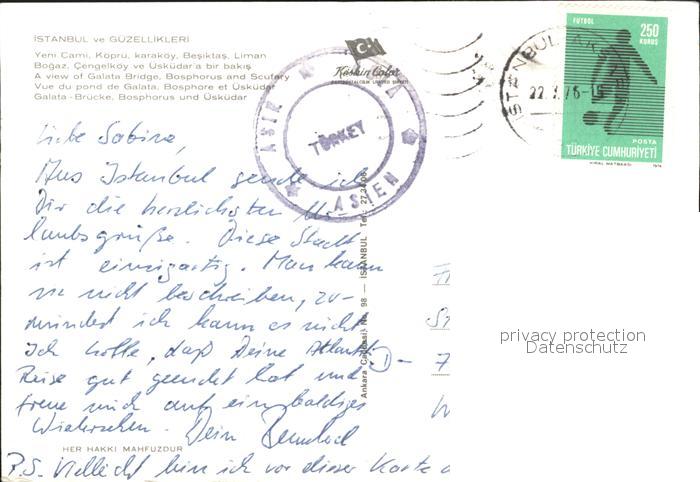 İSTANBUL ve GÜZELLİKLERİ
Yeni Cami, Köprü, karaköy, Beşiktaş, Liman
Boğaz, Çengelköy ve Üsküdar'a bir bakış
A view of Galata Bridge, Bosphorus and Scutary
Vue du pond de Galata, Bosphore et Üsküdar
Galata-Brücke, Bosphorus und Üsküdar
Keskin Color
ASIE
ASIEN
TÜRKEY
İSTANBUL
FUTBOL
250
KURUŞ
POSTA
TÜRKİYE CUMHURİYETİ
Liebe Sabine,
Aus Istanbul sende ich
Dir die herzlichsten Ur-
laubsgrüße. Diese Stadt
ist einzigartig. Man kann
sie nicht beschreiben, zu-
mindest ich kann es nicht.
Ich hoffe, daß Deine Atlantik
Reise gut geendet hat und
freue mich auf ein baldiges
Wiedersehen. Dein
P.S. Vielleicht bin ich vor dieser Karte
HER HAKKI MAHFUZDUR
Ankara Caddesi No. 98 — İSTANBUL Tel:
D-7
privacy protection
Datenschutz